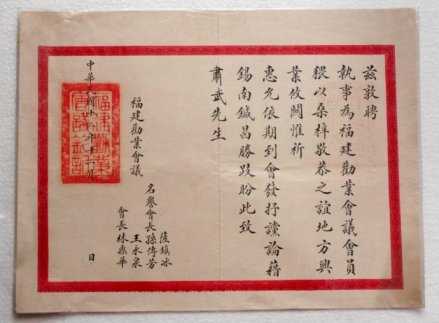 茲敦聘
執事為福建勸業會議會員
猥以桑梓敬恭之誼地方興
業攸關惟祈
惠允依期到會發抒讜論藉
錫南鍼曷勝跂盼此致
肅武先生
福建勸業會議
名譽會長
薩鎮冰
孫傳芳
王永泉
會長林森華
中華民國
日